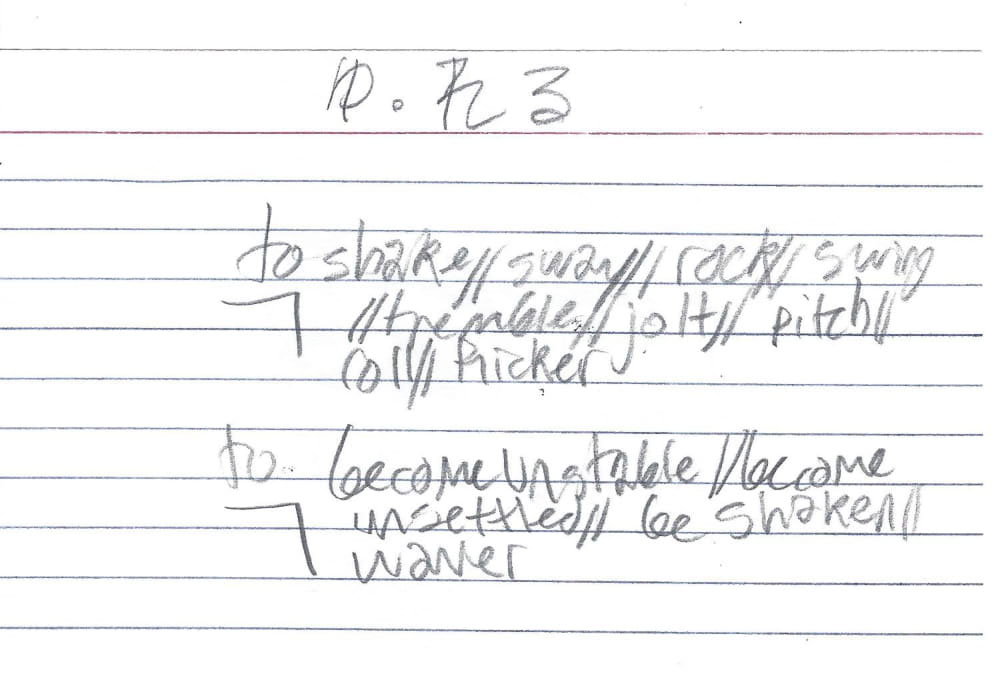 ゆ.れる
to shake// sway// rock// swing
// tremble// jolt// pitch//
roll// flicker
to become unstable // become
unsettled// be shaken//
waver